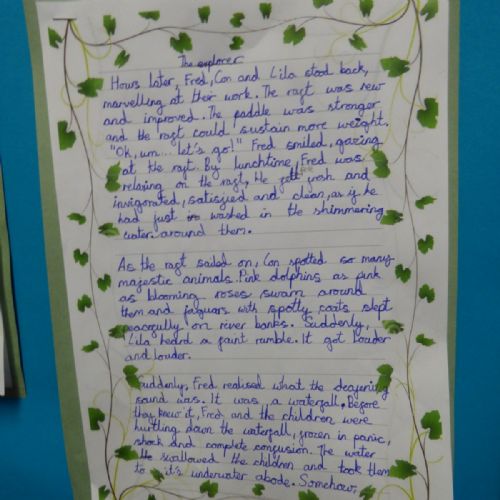 The explorer
Hours later, Fred, Con and Lila stood back,
marvelling at their work. The raft was new
and improved. The paddle was stronger
and the raft could sustain more weight.
"Ok, um... let's go!" Fred smiled, gazing
at the raft. By lunchtime, Fred was
relaxing on the raft, He posh and
invigorated, satisfied and clean, as if he
had just washed in the shimmering
water around them.
As the raft sailed on, Con spotted so many
majestic animals. Pink dolphins as pink
as blooming roses swam around
them and jaguars with spotty coats slept
peacefully on river banks. Suddenly,
Lila heard a faint rumble. It got louder
and louder.
Suddenly, Fred realised what the deafening
sound was. It was a waterfall. Before
they knew it, Fred and the children were
hurtling down the waterfall, frozen in panic,
shock and complete confusion. The water
swallowed the children and took them
to it's underwater abode. Somehow,